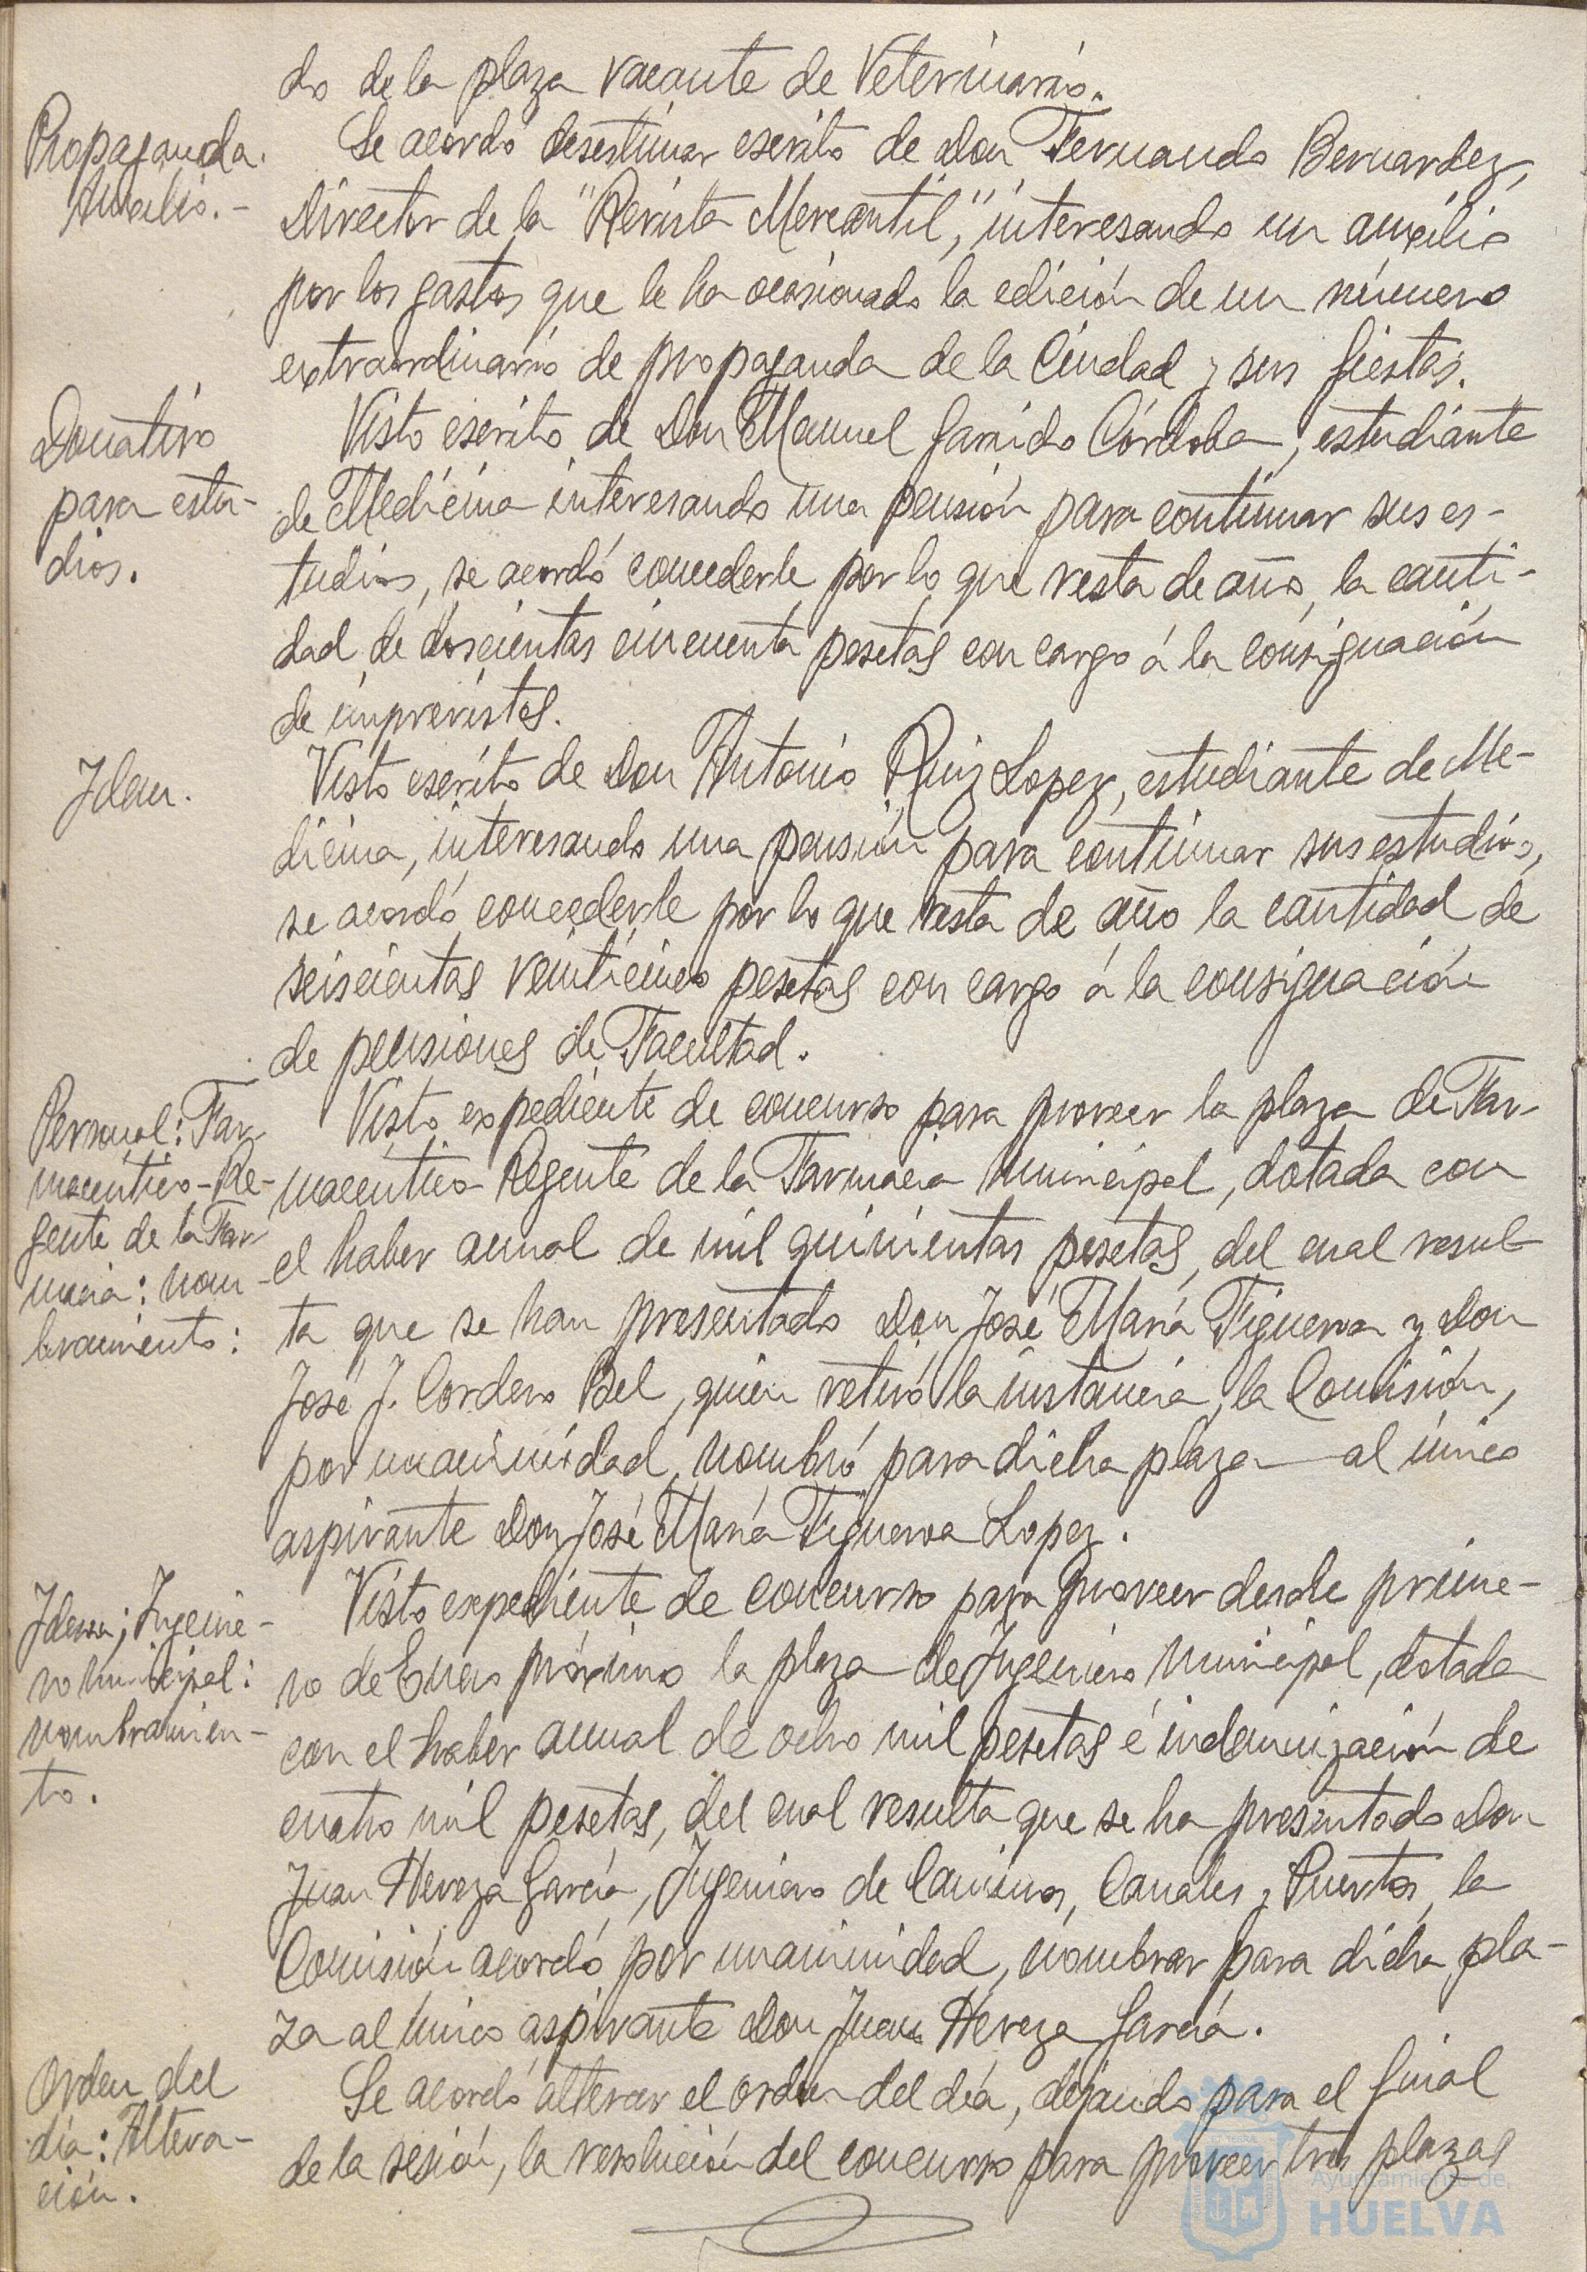 do de la plaza vacante de Veterinario.
Propaganda.
Auxilio.-
Se acordó desestimar escrito de Don Fernando Bernardez,
Director de la "Revista Mercantil", interesando un auxilio
por los gastos que le ha ocasionado la edición de un número
extraordinario de propaganda de la Ciudad y sus fiestas.
Donativo
para estu-
dios.
Visto escrito de Don Manuel Garrido Córdoba, estudiante
de Medicina interesando una pensión para continuar sus es-
tudios, se acordó concederle por lo que resta de año, la canti-
dad de doscientas cincuenta pesetas con cargo á la consignación
de imprevistos.
Idem.
Visto escrito de Don Antonio Ruiz Lopez, estudiante de Me-
dicina, interesando una pensión para continuar sus estudios,
se acordó concederle por lo que resta de año la cantidad de
seiscientas veinticinco pesetas con cargo á la consignación
de pensiones de Facultad.
Personal: Far-
macéutico-Re-
gente de la Far
macia: nom-
bramiento:
Visto expediente de concurso para proveer la plaza de Far-
macéutico Regente de la Farmacia municipal, dotada con
el haber anual de mil quinientas pesetas, del cual resul-
ta que se han presentado Don José María Figueroa y Don
José J. Cordero Bel, quien retiró la instancia, la Comisión,
por unanimidad, nombró para dicha plaza al único
aspirante Don José María Figueroa Lopez.
Idem; Ingenie-
ro municipal:
nombramien-
to.
Visto expediente de concurso para proveer desde prime-
ro de Enero próximo la plaza de Ingeniero municipal, dotada
con el haber anual de ocho mil pesetas é indemnización de
cuatro mil pesetas, del cual resulta que se ha presentado Don
Juan Hereza García, Ingeniero de Caminos, Canales y Puertos, la
Comisión acordó por unanimidad, nombrar para dicha pla-
za al único aspirante Don Juan Hereza García.
Orden del
día: Altera-
ción.
Se acordó alterar el orden del día, dejando para el final
de la sesión, la resolución del concurso para proveer tres plazas
Ayuntamiento de
HUELVA